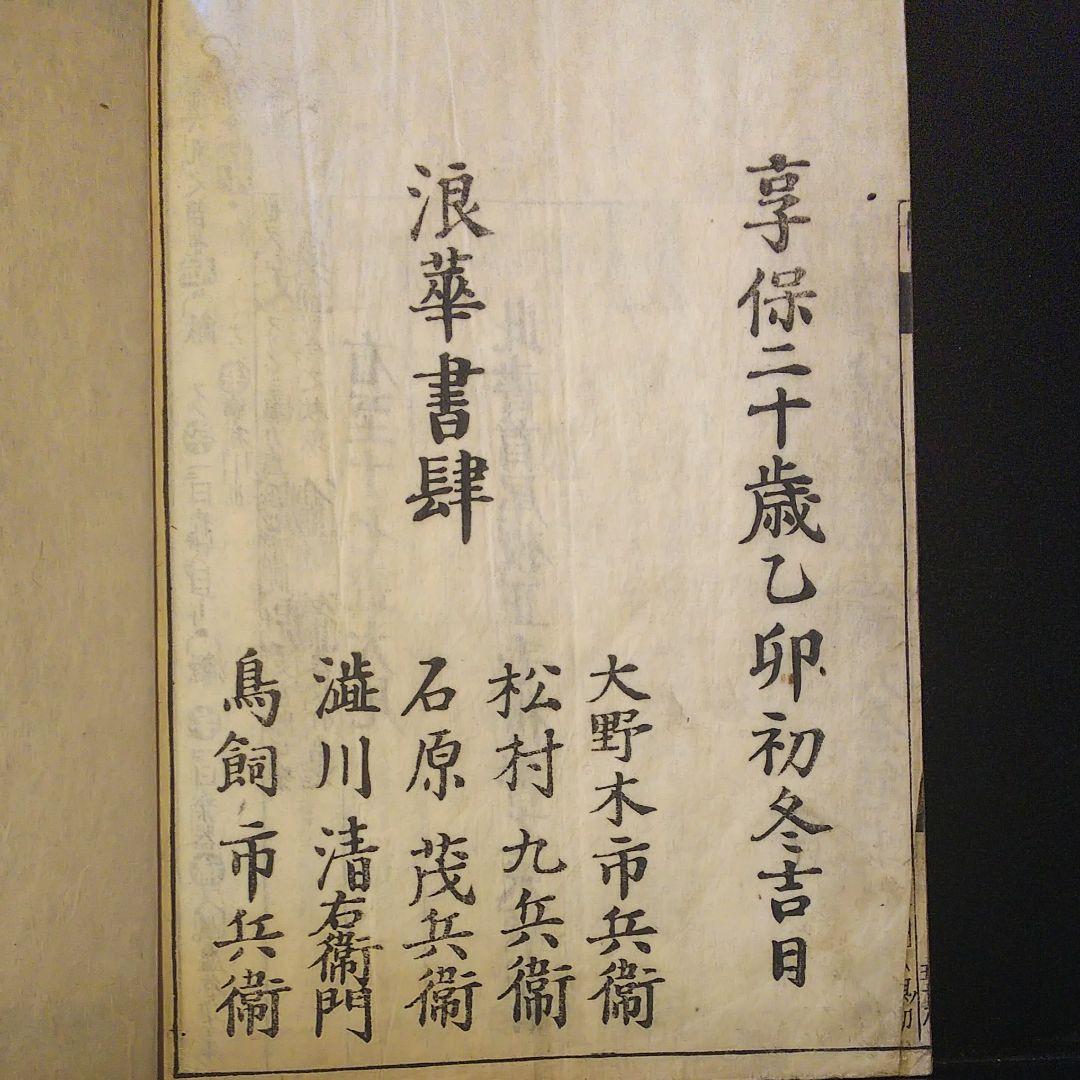 享保二十歳乙卯初冬吉日
浪華書肆
大野木市兵衛
松村九兵衛
石原茂兵衛
澁川清右衛門
鳥飼市兵衛